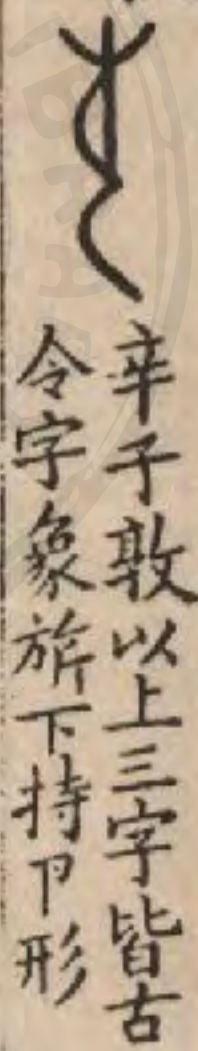 辛子敦以上三字皆古
令字象旂下持卩形